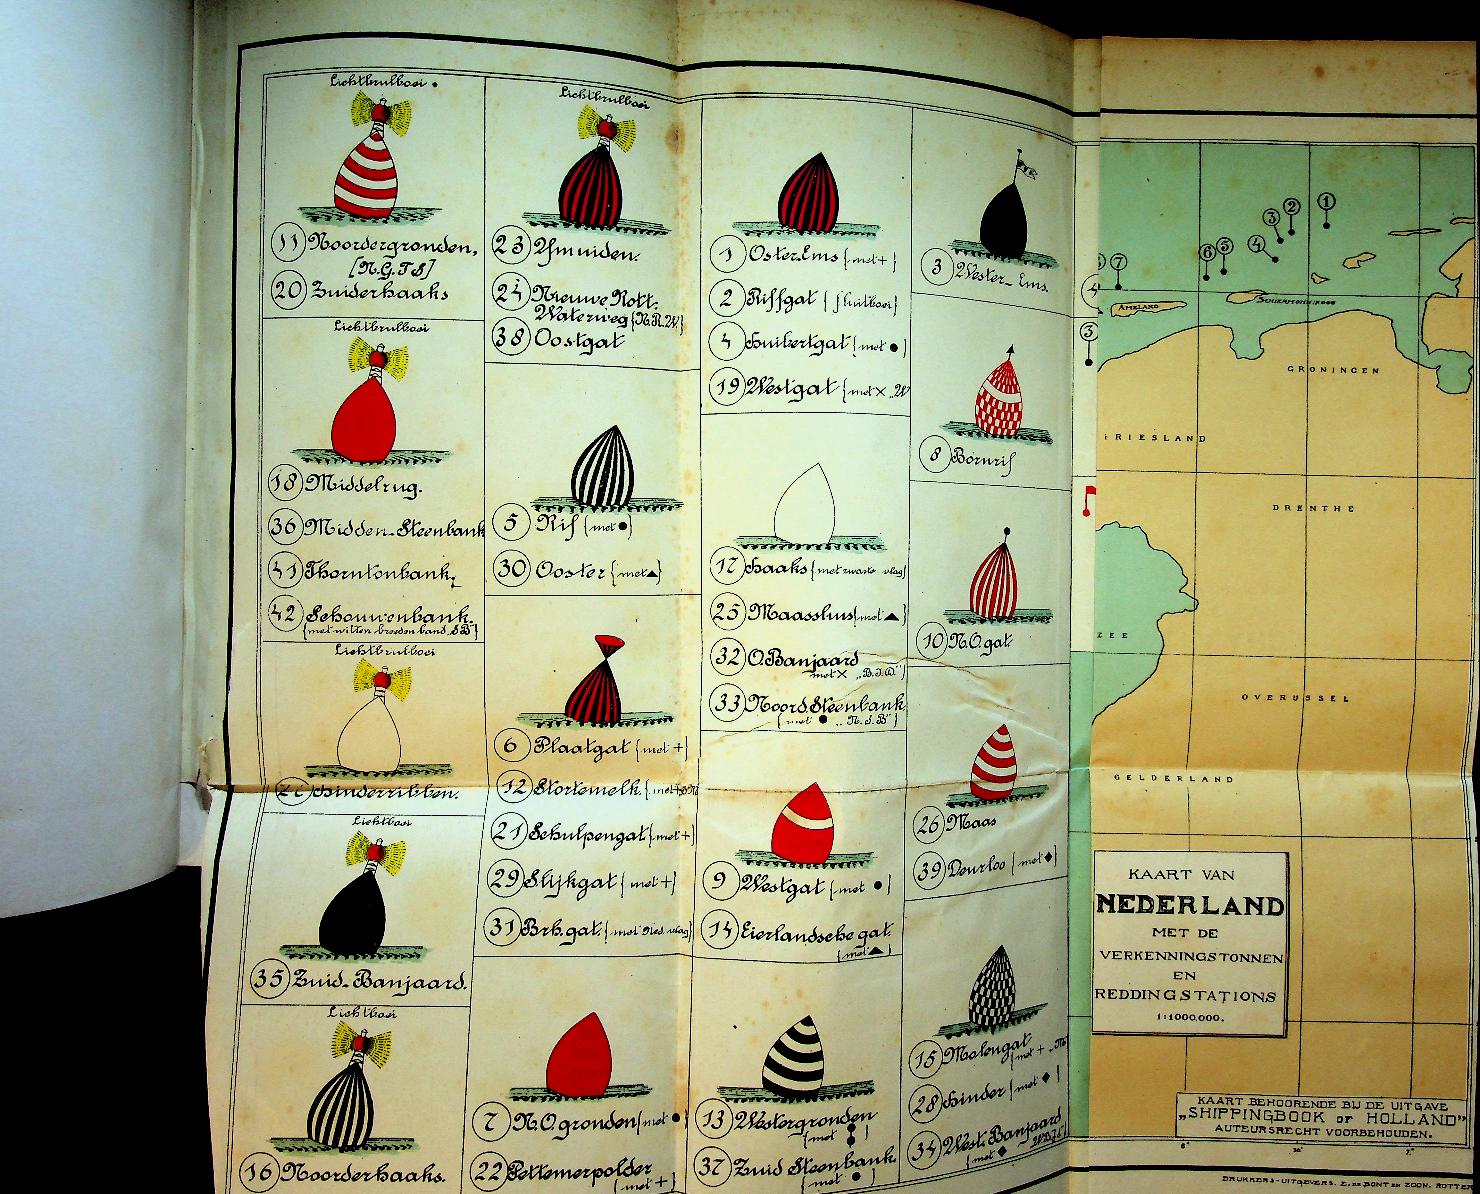 Lichtbrulboei.
11 Noordergronden,
[N.G.T.S]
20 Zuiderhaaks
Lichtbrulboei
18 Middelrug.
36 Midden-Steenbank
41 Thorntonbank,
42 Schouwenbank.
{met witten breeden band „S.B"}
Lichtbrulboei
Hinderribben.
Lichtboei
35 Zuid-Banjaard.
Lichtboei
16 Noorderhaaks.
Lichtbrulboei
23 Ymuiden.
24 Nieuwe Rott.
Waterweg {N.R.W.}
38 Oostgat
5 Rif {met ●}
30 Ooster {met ▲}
6 Plaatgat {met +}
12 Stortemelk. {met
21 Schulpengat {met +}
29 Slijkgat {met +}
31 Brh. gat. {met Ned. vlag}
7 N.O. gronden {met ●
22 Pettemerpolder
{met +}
1 Oster Ems {met +}
2 Riffgat {fluitboei}
4 Huibertgat {met ●}
19 Westgat {met × „W
17 Haaks {met zwarte vlag}
25 Maassluis {met ▲}
32 O. Banjaard
met ×
33 Noord Steenbank
{met ● „N.S.B"}
9 Westgat {met ●}
14 Eierlandsche gat.
{met ▲}
13 Westergronden
{met }
37 Zuid Steenbank.
{met ● }
3 Wester-Ems.
8 Bornrif
10 N.O. gat.
26 Maas
39 Deurloo {met ◆}
15 Molengat
{met +
28 Hinder {met ◆ }
34 West. Banjaard
{met ◆
1
2
3
4
5
6
7
3
AMELAND
SCHIERMONNIKOOG
GRONINGEN
RIESLAND
DRENTHE
ZEE
OVERIJSSEL
GELDERLAND
KAART VAN
NEDERLAND
MET DE
VERKENNINGSTONNEN
EN
REDDINGSTATIONS
1:1000.000.
KAART BEHOORENDE BIJ DE UITGAVE
„SHIPPINGBOOK OF HOLLAND"
AUTEURSRECHT VOORBEHOUDEN.
6°
30'
7°
DRUKKERS-UITGEVERS. E. DE BONT EN ZOON. ROTTER